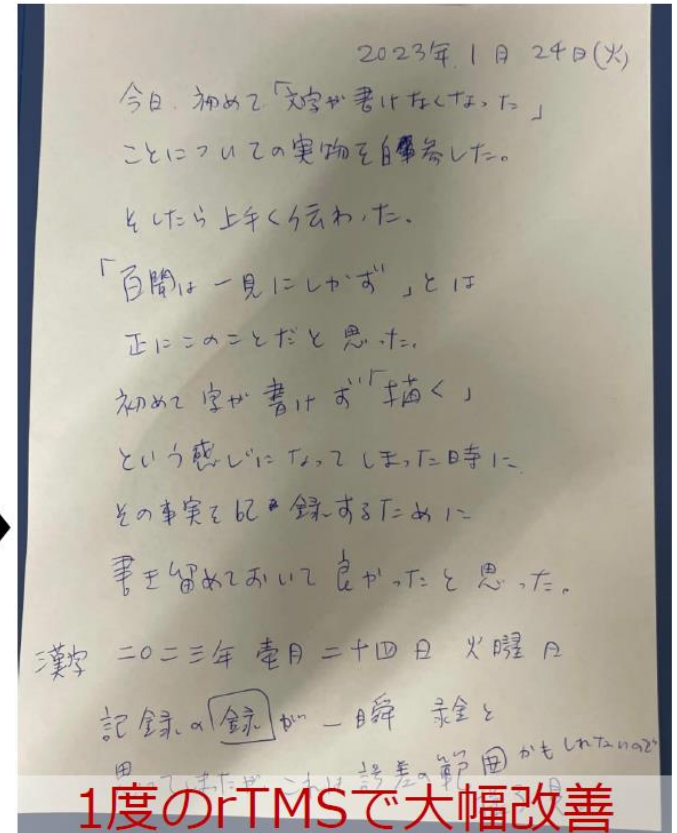 2023年 1月 24日(火)
今日、初めて「文字が書けなくなった」
ことについての実物を自筆参した。
そしたら上手く伝わった。
「百聞は一見にしかず」とは
正にこのことだと思った。
初めて字が書けず「描く」
という感じになってしまった時に
その事実を記録するために
書き留めておいて良かったと思った。
漢字 二〇二三年 壱月 二十四日 火曜日
記録の録が一瞬 录金と
思ってしまったが これは誤差の範囲かもしれないので
1度のrTMSで大幅改善